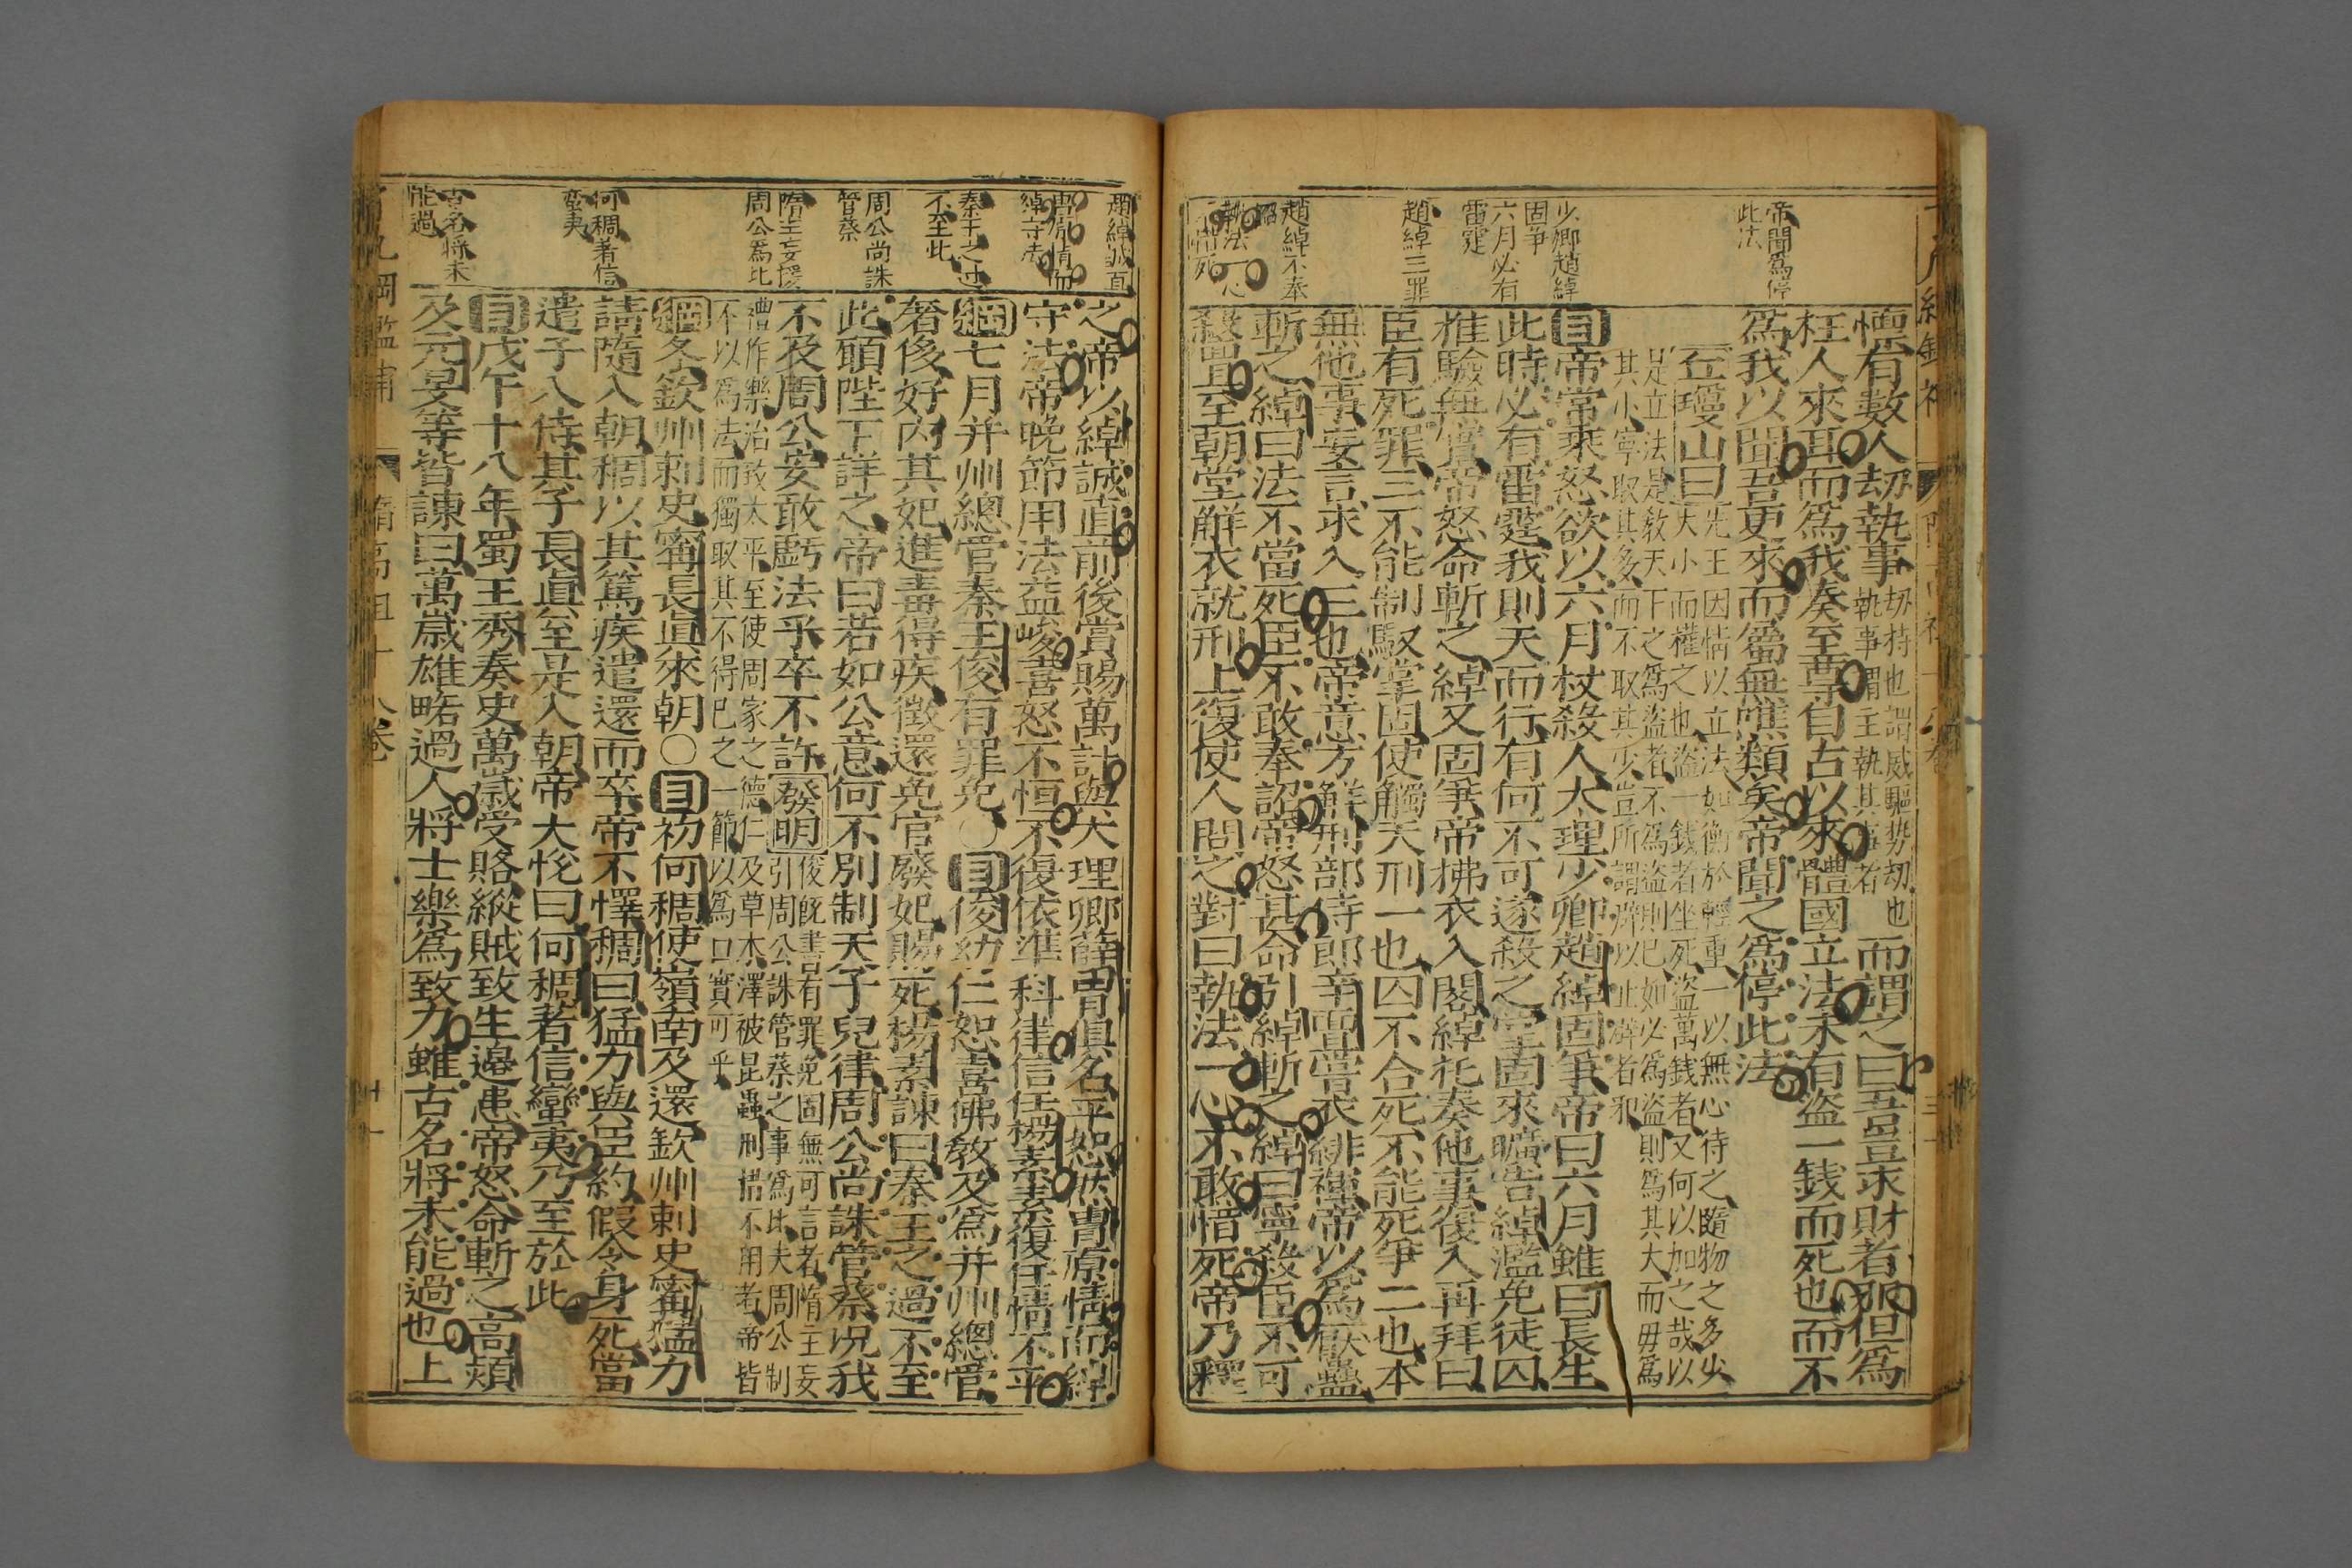 帝聞爲停
此法
少卿趙綽
固争
六月必有
雷霆
趙綽三罪
趙綽不奉
詔
執法一心
不惜死
懐有數人劫執事劫持也謂威驅势劫也
執事謂主執其事者而謂之曰吾豈求財者邪但爲
枉人來耳而爲我奏至尊自古以來體國立法未有盗一錢而死也而不
爲我以聞吾更來而屬無噍類矣帝聞之爲停此法
丘瓊山曰先王因情以立法如衡於輕重一以無心待之隨物之多少
大小而權之也盜一錢者坐死盜萬錢者又何以加之哉以
是立法是敎天下之爲盜者不爲盜則已如必爲盜則爲其大而毋爲
其小寧取其多而不取其少豈所謂辟以止辟者邪
目帝常乘怒欲以六月杖殺人大理少卿趙綽固争帝曰六月雖曰長生
此時必有雷霆我則天而行有何不可遂殺之掌固來曠告綽濫免徒囚
推驗無實帝怒命斬之綽又固爭帝拂衣入閤綽託奏他事復入再拜曰
臣有死罪三不能制馭掌固使觸天刑一也囚不合死不能死爭二也本
無他事妄言求入三也帝意方解刑部侍郎辛亶嘗衣緋褌帝以爲厭蠱
斬之綽曰法不當死臣不敢奉詔帝怒甚命引綽斬之綽曰寧殺臣不可
殺亶至朝堂解衣就刑上復使人問之對曰執法一心不敢惜死帝乃釋
趙綽誠直
冑原情而
綽守法
秦王之过
不至此
周公尚誅
管蔡
隋主妄援
周公爲比
何稠著信
蛮夷
古名將未
能過
之帝以綽誠直前後賞賜萬計與大理卿薛冑俱名平恕然冑原情而綽
守法帝晚節用法益峻喜怒不恒不復依準科律信任楊素素復任情不平
綱七月并州總管秦王俊有罪免○目俊幼仁恕喜佛教及爲并州總管
奢後好內其妃進毒得疾徵還免官廢妃賜死楊素諫曰秦王之過不至
此願陛下詳之帝曰若如公意何不別制天子兒律周公尚誅管蔡況我
不及周公安敢虧法乎卒不許發明俊旣書有罪免固無可言者隋主妄
引周公誅管蔡之事爲比夫周公制
禮作樂治致太平至使周家之德仁及草木澤被昆蟲刑措不用者帝皆
不以爲法而獨取其不得已之一節以爲口實可乎
綱冬欽州刺史甯長眞來朝○目初何稠使嶺南及還欽州刺史甯猛力
請隨入朝稠以其篤疾遣還而卒帝不懌稠曰猛力與臣約假令身死當
遣子入侍其子長眞至是入朝帝大悅曰何稠著信蠻夷乃至於此
目戊午十八年蜀王秀奏史萬歲受賂縱賊致生邊患帝怒命斬之高熲
及元旻等皆諫曰萬歲雄略過人將士樂爲致力雖古名將未能過也上
隋高祖十八卷